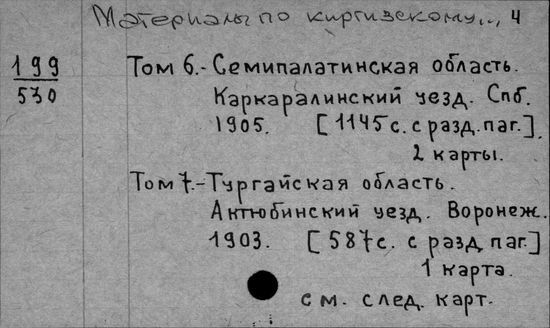 Материалы по киргизскому..., 4
199
530
Том 6.- Семипалатинская область.
Каркаралинский уезд. Спб.
1905. [1145 с. с разд. паг.].
2 карты.
Том 7.- Тургайская область.
Актюбинский уезд. Воронеж.
1903. [587 с. с разд паг.]
1 карта.
см. след. карт.